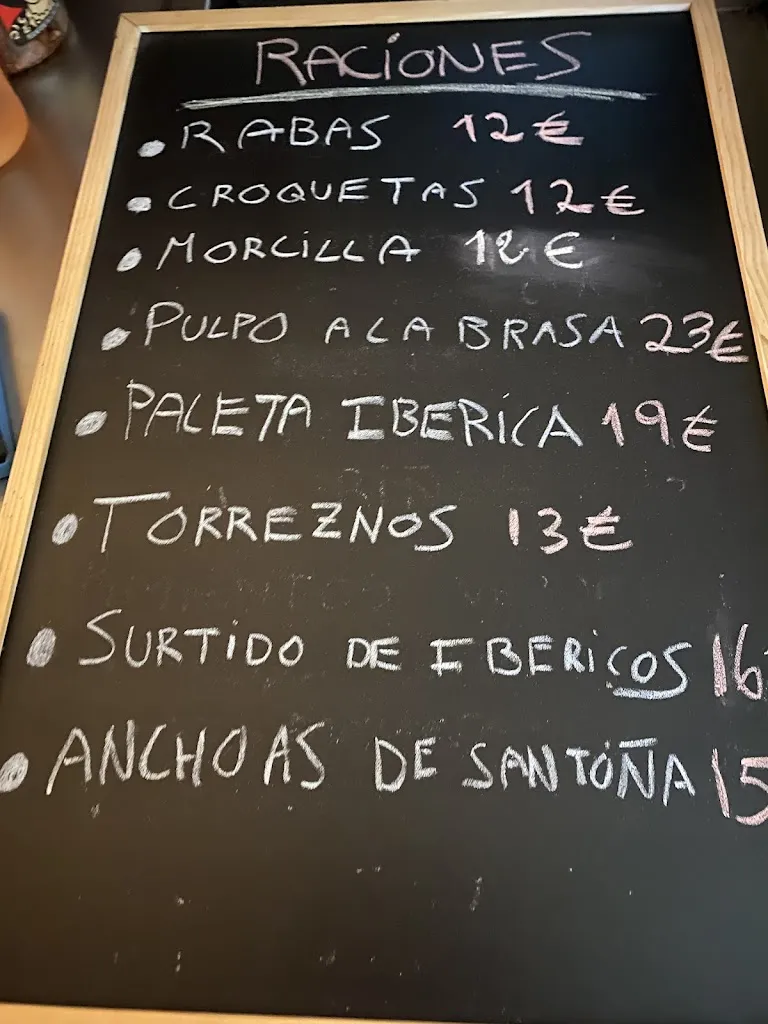 RACIONES
RABAS 12€
CROQUETAS 12€
MORCILLA 12€
PULPO A LA BRASA 23€
PALETA IBERICA 19€
TORREZNOS 13€
SURTIDO DE IBERICOS 16
ANCHOAS DE SANTOÑA 15